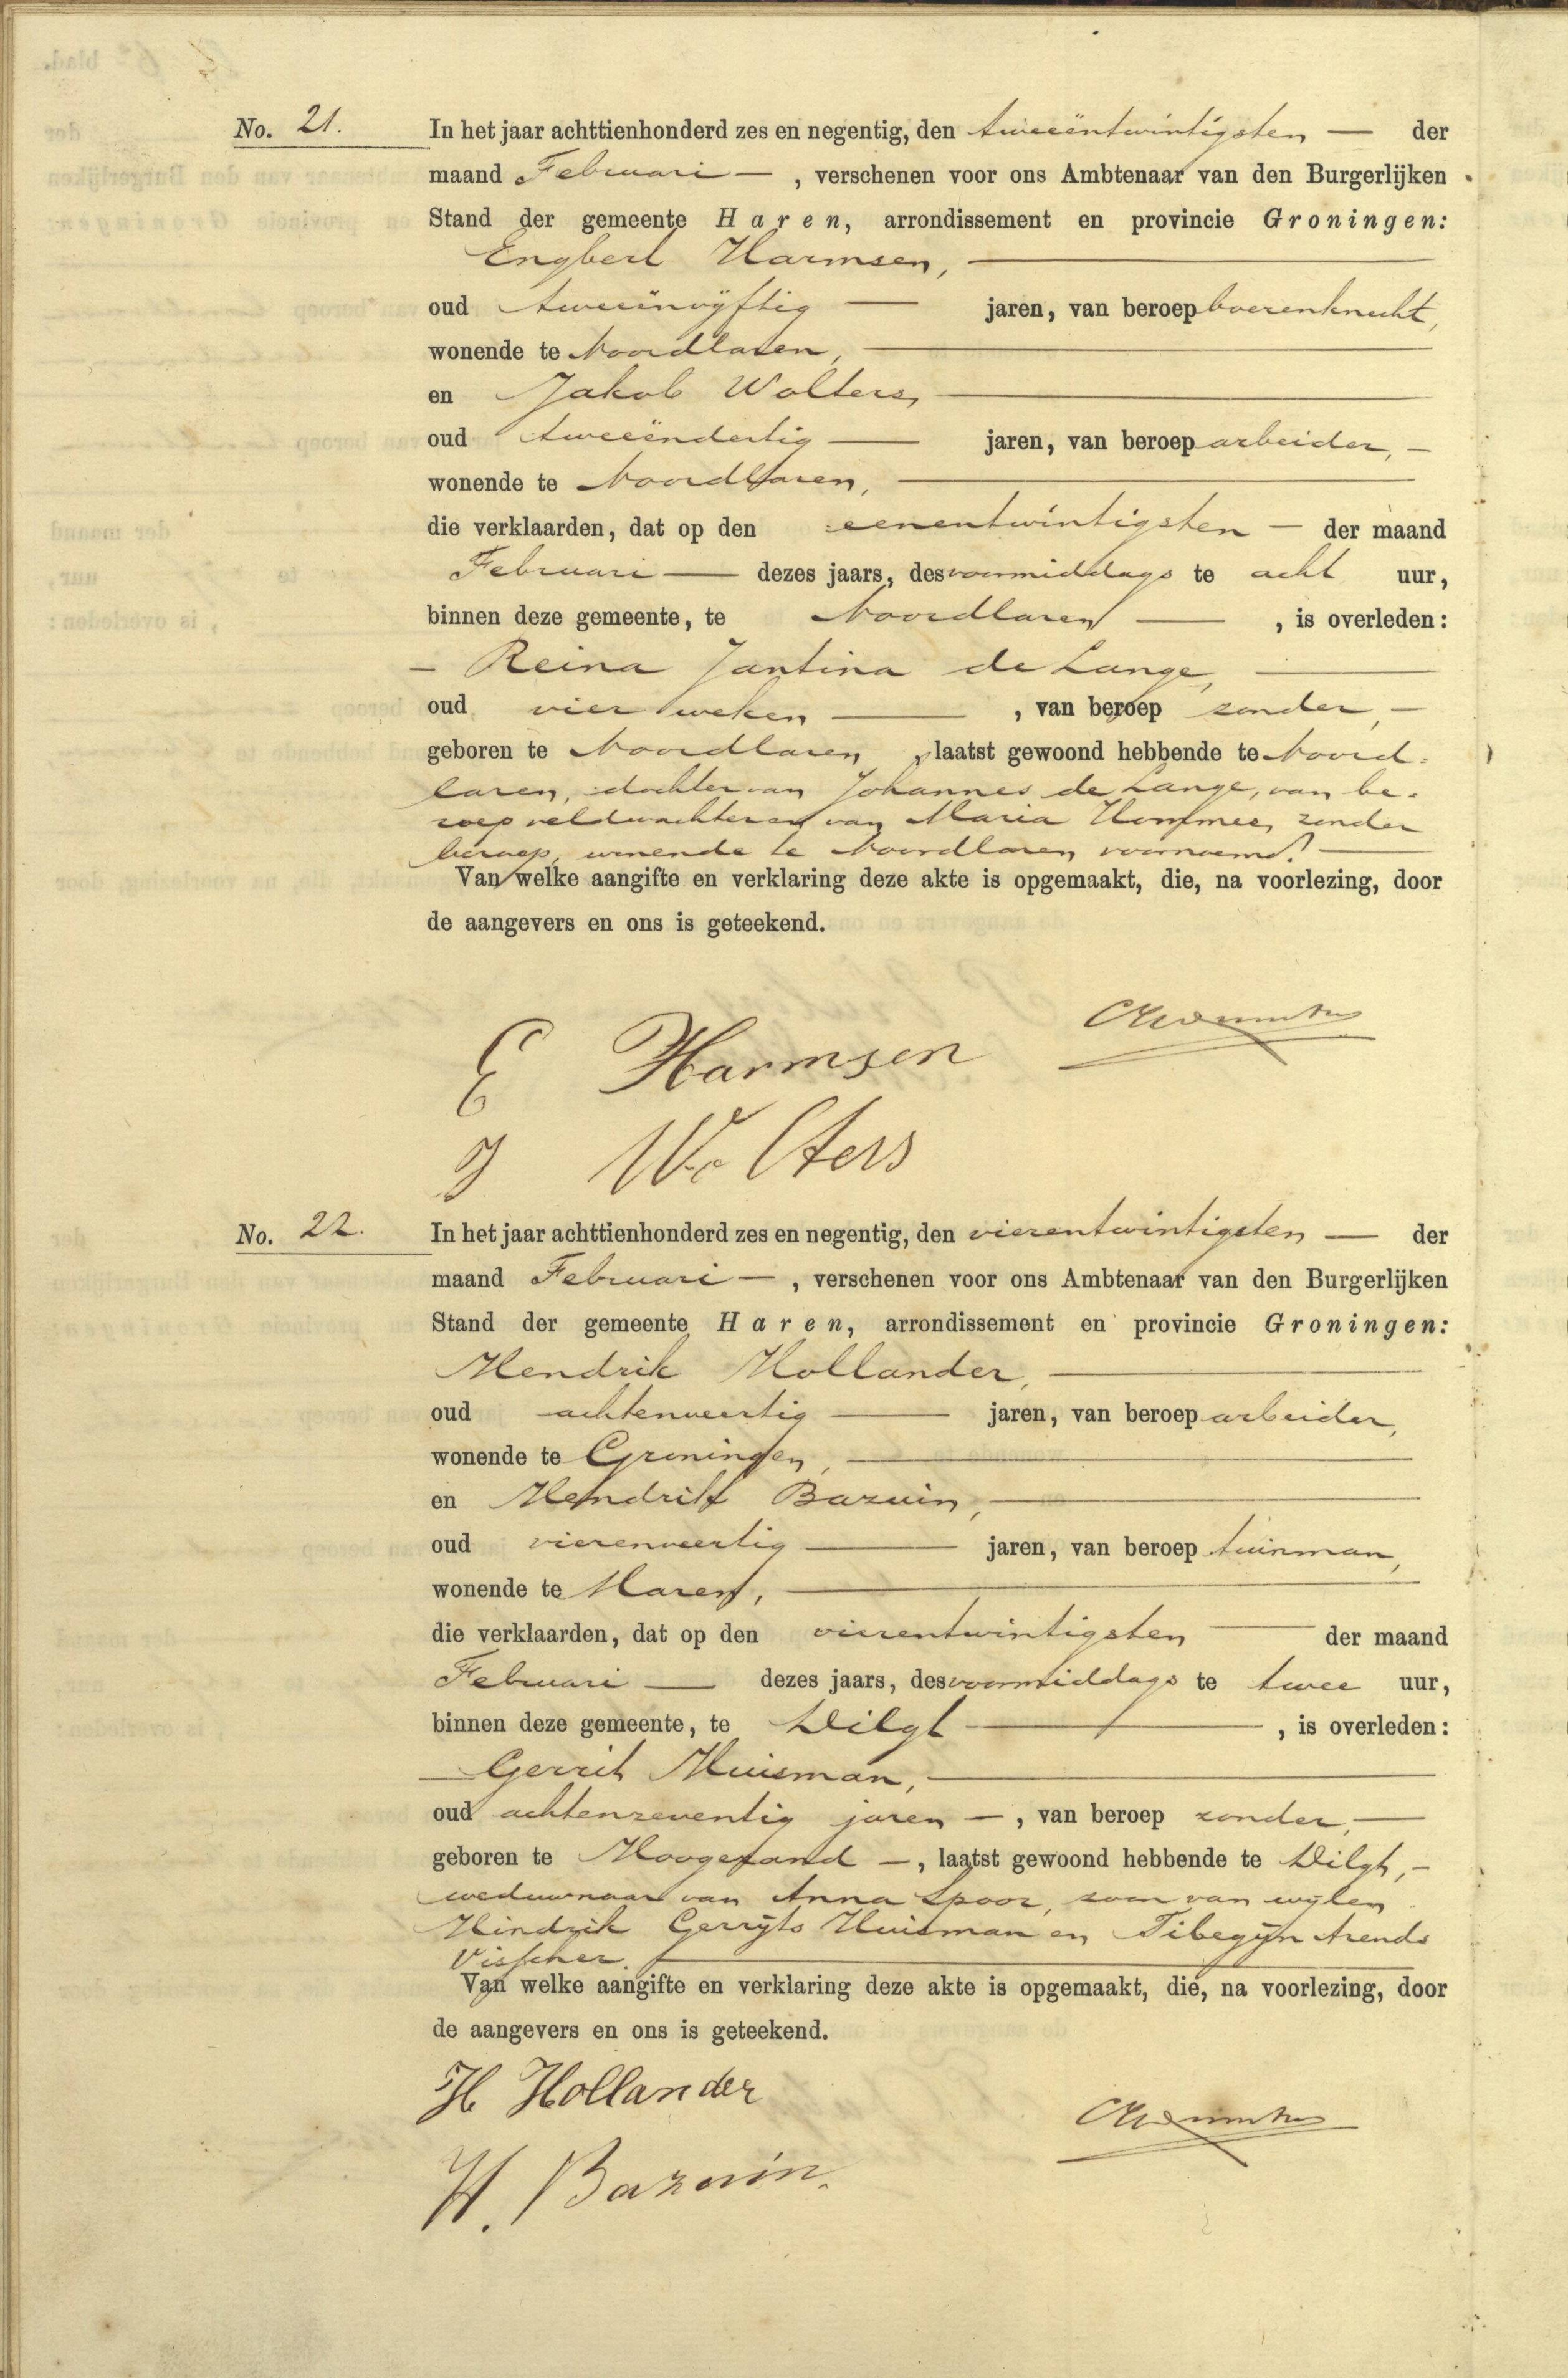 No. 21. In het jaar achttienhonderd zes en negentig, den tweeëntwintigsten — der
maand Februari — , verschenen voor ons Ambtenaar van den Burgerlijken
Stand der gemeente Haren, arrondissement en provincie Groningen:
Engbert Harmsen,
oud tweeënvijftig — jaren, van beroep boerenknecht,
wonende te Noordlaren,
en Jakob Wolters,
oud tweeëndertig — jaren, van beroep arbeider, —
wonende te Noordlaren,
die verklaarden, dat op den eenentwintigsten — der maand
Februari — dezes jaars, des voormiddags te acht uur,
binnen deze gemeente, te Noordlaren — , is overleden:
— Reina Jantina de Lange,
oud vier weken — , van beroep zonder, —
geboren te Noordlaren, laatst gewoond hebbende te Noord-
laren, dochter van Johannes de Lange, van be-
roep veldwachter en van Maria Hommes, zonder
beroep, wonende te Noordlaren voornoemd. —
Van welke aangifte en verklaring deze akte is opgemaakt, die, na voorlezing, door
de aangevers en ons is geteekend.
E Harmsen
J Wolters
No. 22. In het jaar achttienhonderd zes en negentig, den vierentwintigsten — der
maand Februari — , verschenen voor ons Ambtenaar van den Burgerlijken
Stand der gemeente Haren, arrondissement en provincie Groningen:
Hendrik Hollander,
oud achtenveertig — jaren, van beroep arbeider,
wonende te Groningen,
en Hendrik Bazuin,
oud vierenveertig — jaren, van beroep tuinman,
wonende te Haren,
die verklaarden, dat op den vierentwintigsten — der maand
Februari — dezes jaars, des voormiddags te twee uur,
binnen deze gemeente, te Dilgt — , is overleden:
— Gerrit Huisman,
oud achtenzeventig jaren — , van beroep zonder, —
geboren te Hoogezand — , laatst gewoond hebbende te Dilgt, —
weduwnaar van Anna Spoor, zoon van wijlen
Hindrik Gerrijts Huisman en Tibegijn Arends
Visscher.
Van welke aangifte en verklaring deze akte is opgemaakt, die, na voorlezing, door
de aangevers en ons is geteekend.
H Hollander
H. Bazuin.